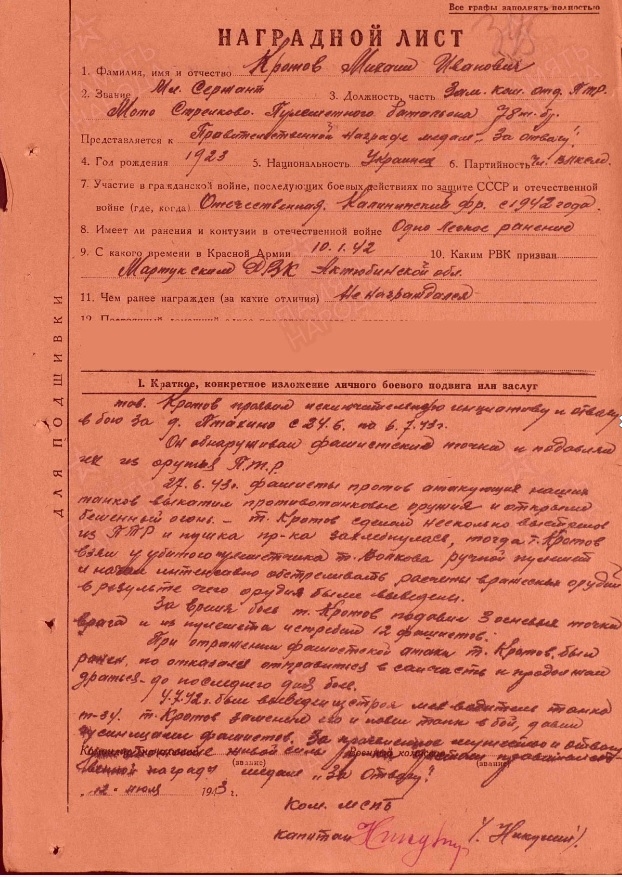 Все графы заполнять полностью
НАГРАДНОЙ ЛИСТ
1. Фамилия, имя и отчество Кротов Михаил Иванович
2. Звание Мл. Сержант 3. Должность, часть Зам. ком. отд. ПТР.
Мото Стрелково. Пулеметного батальона 78 т. бр.
Представляется к Правительственной награде медали „За отвагу"
4. Год рождения 1923 5. Национальность Украинец 6. Партийность чл. ВЛКСМ.
7. Участие в гражданской войне, последующих боевых действиях по защите СССР и отечественной
войне (где, когда) Отечественная. Калининский фр. с 1942 года.
8. Имеет ли ранения и контузии в отечественной войне Одно легкое ранение
9. С какого времени в Красной Армии 10.1.42 10. Каким РВК призван
Мартукским РВК Актюбинской обл.
11. Чем ранее награжден (за какие отличия) Не награждался
ДЛЯ ПОДШИВКИ
I. Краткое, конкретное изложение личного боевого подвига или заслуг
тов. Кротов проявил исключительную инициативу и отвагу
в бою за д. с 24.6. по 6.7.43 г.
Он обнаруживал фашистские точки и подавлял
их из оружия ПТР
27.6.43 г. фашисты против атакующих наших
танков выкатили противотанковые орудия и открыли
бешенный огонь. – т. Кротов сделал несколько выстрелов
из ПТР и пушка пр-ка захлебнулась, тогда т. Кротов
взял у убитого пулеметчика т. Волкова ручной пулемет
и начал интенсивно обстреливать расчеты вражеских орудий
в результе чего орудия были выведены.
За время боев т. Кротов подавил 3 огневые точки
врага и из пулемета истребил 12 фашистов.
При отражении фашистской атаки т. Кротов был
ранен, но отказался отправится в санчасть и продолжал
драться до последнего дня боев.
4.7.42 г. был выведен из строя мех. водитель танка
т-34. т. Кротов заменил его и повел танк в бой, давил
гусеницами фашистов. За проявленное мужество и отвагу
награды медали „За Отвагу"
(звание) (звание)
„12" июля 1943 г.
Ком. МСПБ
капитан /Никулин/.